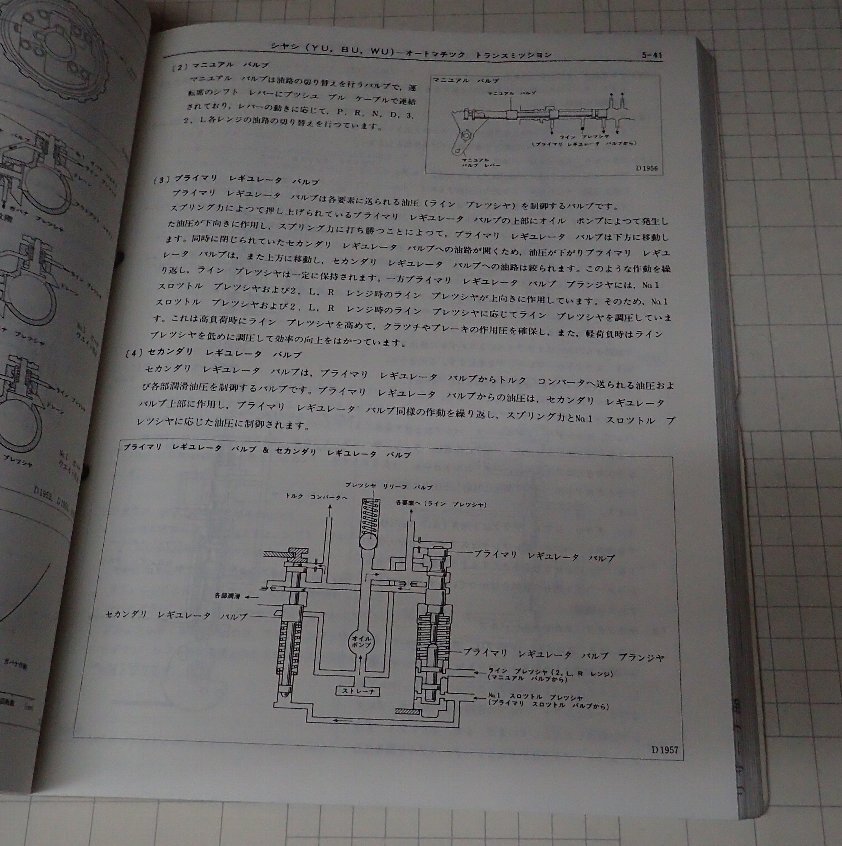 シヤシ (YU, BU, WU)―オートマチツク トランスミツシヨン 5-41
(2) マニユアル バルブ
マニユアル バルブは油路の切り替えを行うバルブで, 運
転席のシフト レバーにプツシユ プル ケーブルで連結
されており, レバーの動きに応じて, P, R, N, D, 3,
2, L各レンジの油路の切り替えを行つています。
マニユアル バルブ
マニユアル バルブ
ライン プレツシヤ
(プライマリ レギユレータ バルブから)
マニユアル
バルブ レバー
D1956
(3) プライマリ レギユレータ バルブ
プライマリ レギユレータ バルブは各要素に送られる油圧 (ライン プレツシヤ) を制御するバルブです。
スプリング力によつて押し上げられているプライマリ レギユレータ バルブの上部にオイル ポンプによつて発生し
た油圧が下向きに作用し, スプリング力に打ち勝つことによつて, プライマリ レギユレータ バルブは下方に移動し
ます。同時に閉じられていたセカンダリ レギユレータ バルブへの油路が開くため, 油圧が下がりプライマリ レギユ
レータ バルブは, また上方に移動し, セカンダリ レギユレータ バルブへの油路は絞られます。このような作動を繰
り返し, ライン プレツシヤは一定に保持されます。一方プライマリ レギユレータ バルブ プランジヤには, No.1
スロツトル プレツシヤおよび2, L, R レンジ時のライン プレツシヤが上向きに作用しています。そのため, No.1
スロツトル プレツシヤおよび2, L, R レンジ時のライン プレツシヤに応じてライン プレツシヤを調圧していま
す。これは高負荷時にライン プレツシヤを高めて, クラツチやブレーキの作用圧を確保し, また, 軽荷負時はライン
プレツシヤを低めに調圧して効率の向上をはかつています。
(4) セカンダリ レギユレータ バルブ
セカンダリ レギユレータ バルブは, プライマリ レギユレータ バルブからトルク コンバータへ送られる油圧およ
び各部潤滑油圧を制御するバルブです。プライマリ レギユレータ バルブからの油圧は, セカンダリ レギユレータ
バルブ上部に作用し, プライマリ レギユレータ バルブ同様の作動を繰り返し, スプリング力とNo.1 スロツトル プ
レツシヤに応じた油圧に制御されます。
プライマリ レギユレータ バルブ & セカンダリ レギユレータ バルブ
プレツシヤ リリーフ バルブ
トルク コンバータへ
各要素へ (ライン プレツシヤ)
プライマリ レギユレータ バルブ
各部潤滑
セカンダリ レギユレータ バルブ
オイル
ポンプ
プライマリ レギユレータ バルブ プランジヤ
ライン プレツシヤ (2, L, R レンジ)
(マニユアル バルブから)
ストレーナ
No.1 スロツトル プレツシヤ
(プライマリ スロツトル バルブから)
D1957